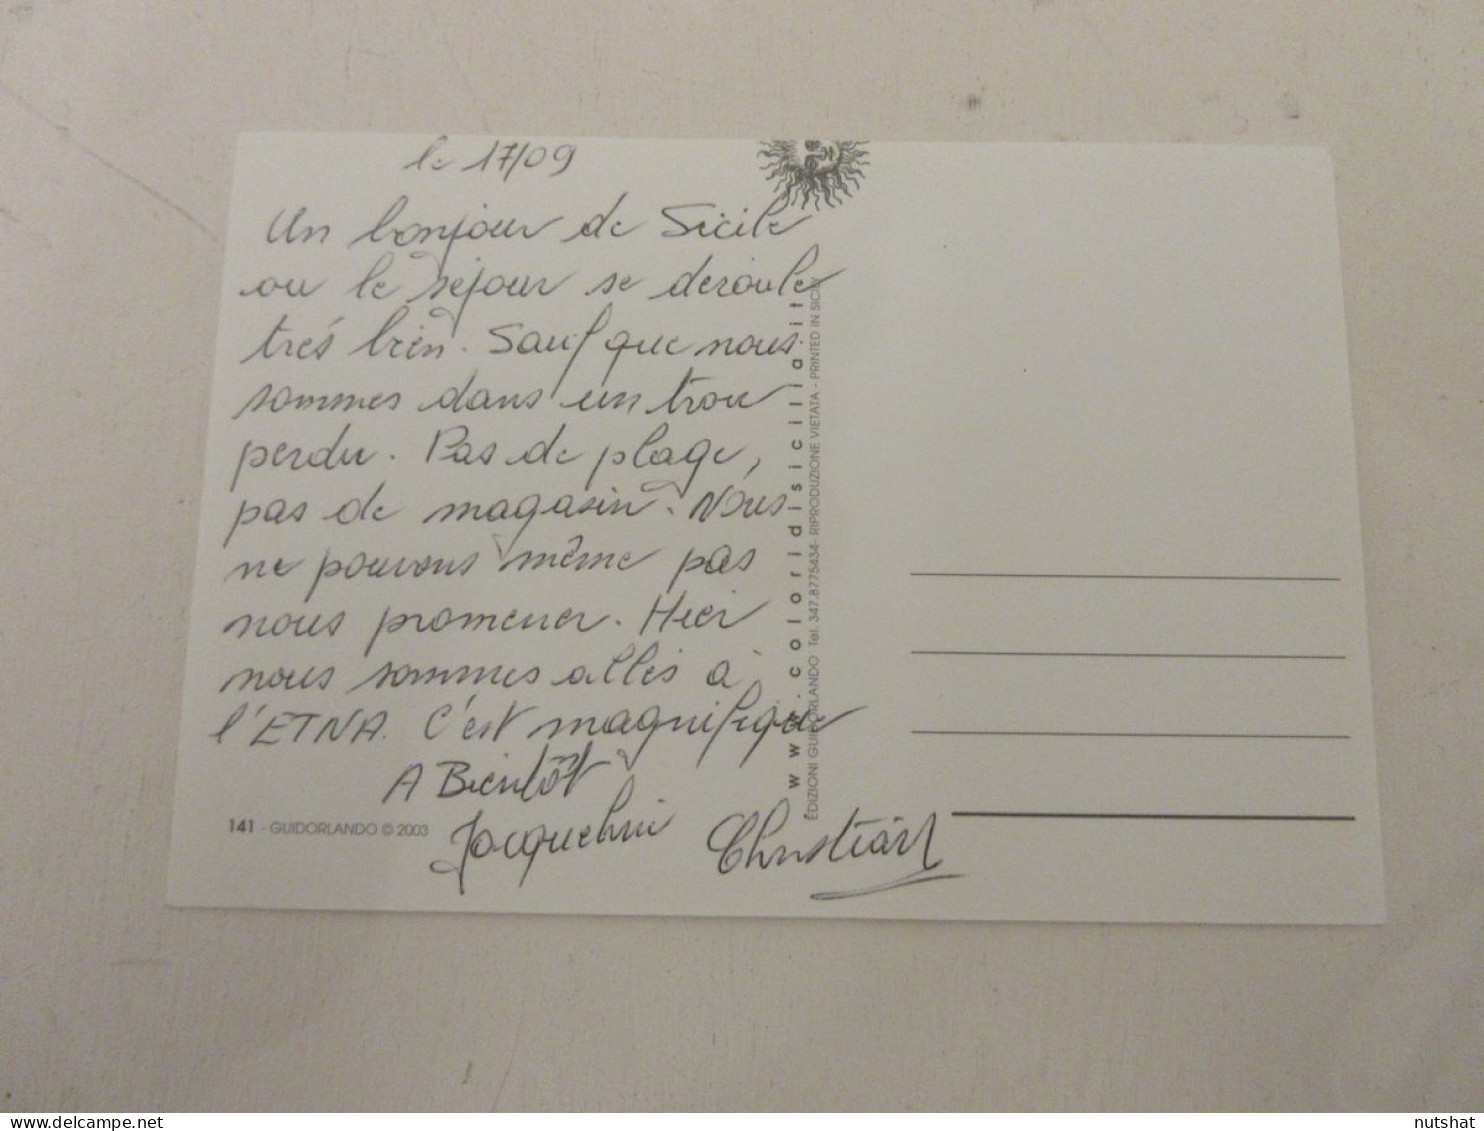 le 17/09
Un bonjour de Sicile
ou le séjour se deroule
trés bien. Sauf que nous
sommes dans un trou
perdu. Pas de plage,
pas de magasin. Nous
ne pouvons même pas
nous promener. Hier
nous sommes allés à
l'ETNA. C'est magnifique
A Bientôt
Jacqueline Christian
141 - GUIDORLANDO © 2003
www.coloridisicilia.it
EDIZIONI GUIDORLANDO Tel. 347.8775434 - RIPRODUZIONE VIETATA - PRINTED IN SICILY
nutshat